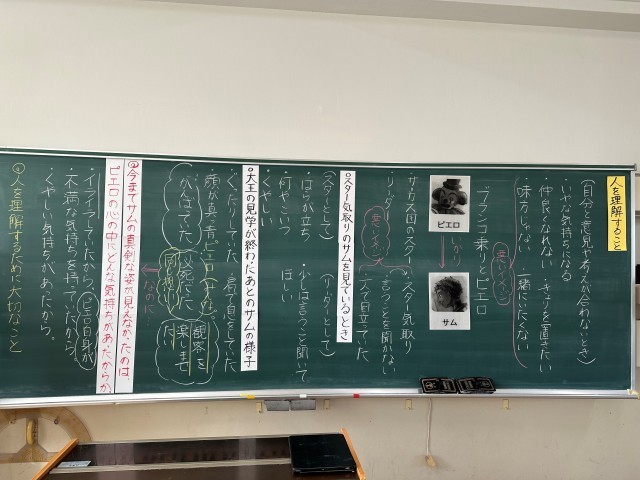 人を理解すること
(自分と意見や考えが合わないとき)
いやな気持ちになる
・仲良くなれない ・きょりを置きたい
・味方じゃない 一緒にいたくない
ブランコ乗りとピエロ
ピエロ
いかり
サム
サーカス団のスター
・リーダー
・スター気取り
・言うことを聞かない
・一人で目立っていた
◎スター気取りのサムを見ているとき
(スターとして)
・はらが立ち
・何やこいつ
・くやしい
(リーダーとして)
・少しは言うこと聞いて
ほしい
◎大王の見学が終わったあとのサムの様子
・ぐったりしていた ・肩で息をしていた
・顔が真っ青
◎今までサムの真剣な姿が見えなかったのは、
ピエロの心の中にどんな気持ちがあったからか
なのに
・イライラしていたから。
ピエロ自身が
・不満な気持ちを持っていたから。
・くやしい気持ちがあったから。
◎人を理解するために大切なこと